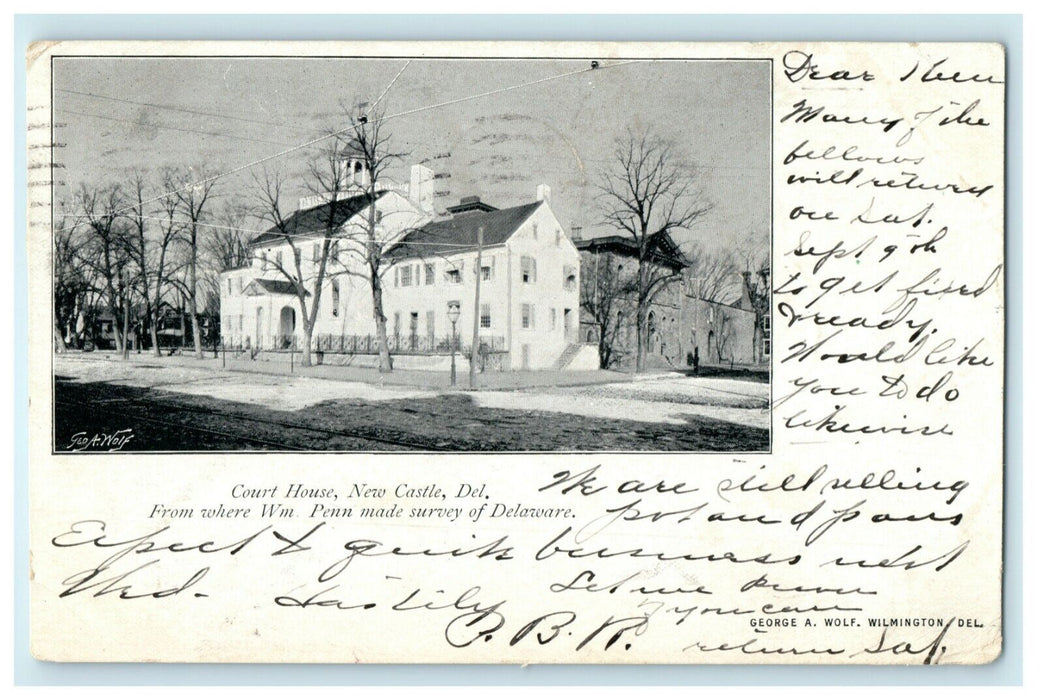 Dear
Many of the
fellows
will return
on Sat.
Sept 9th
to get fixed
& ready.
Would like
you to do
likewise
Geo A. Wolf
Court House, New Castle, Del.
From where Wm. Penn made survey of Delaware.
We are still selling
pots and pans
Expect to quick business next
Wed.
Hastily
P. B. R.
Let me know
if you can
return Sat.
GEORGE A. WOLF. WILMINGTON, DEL.